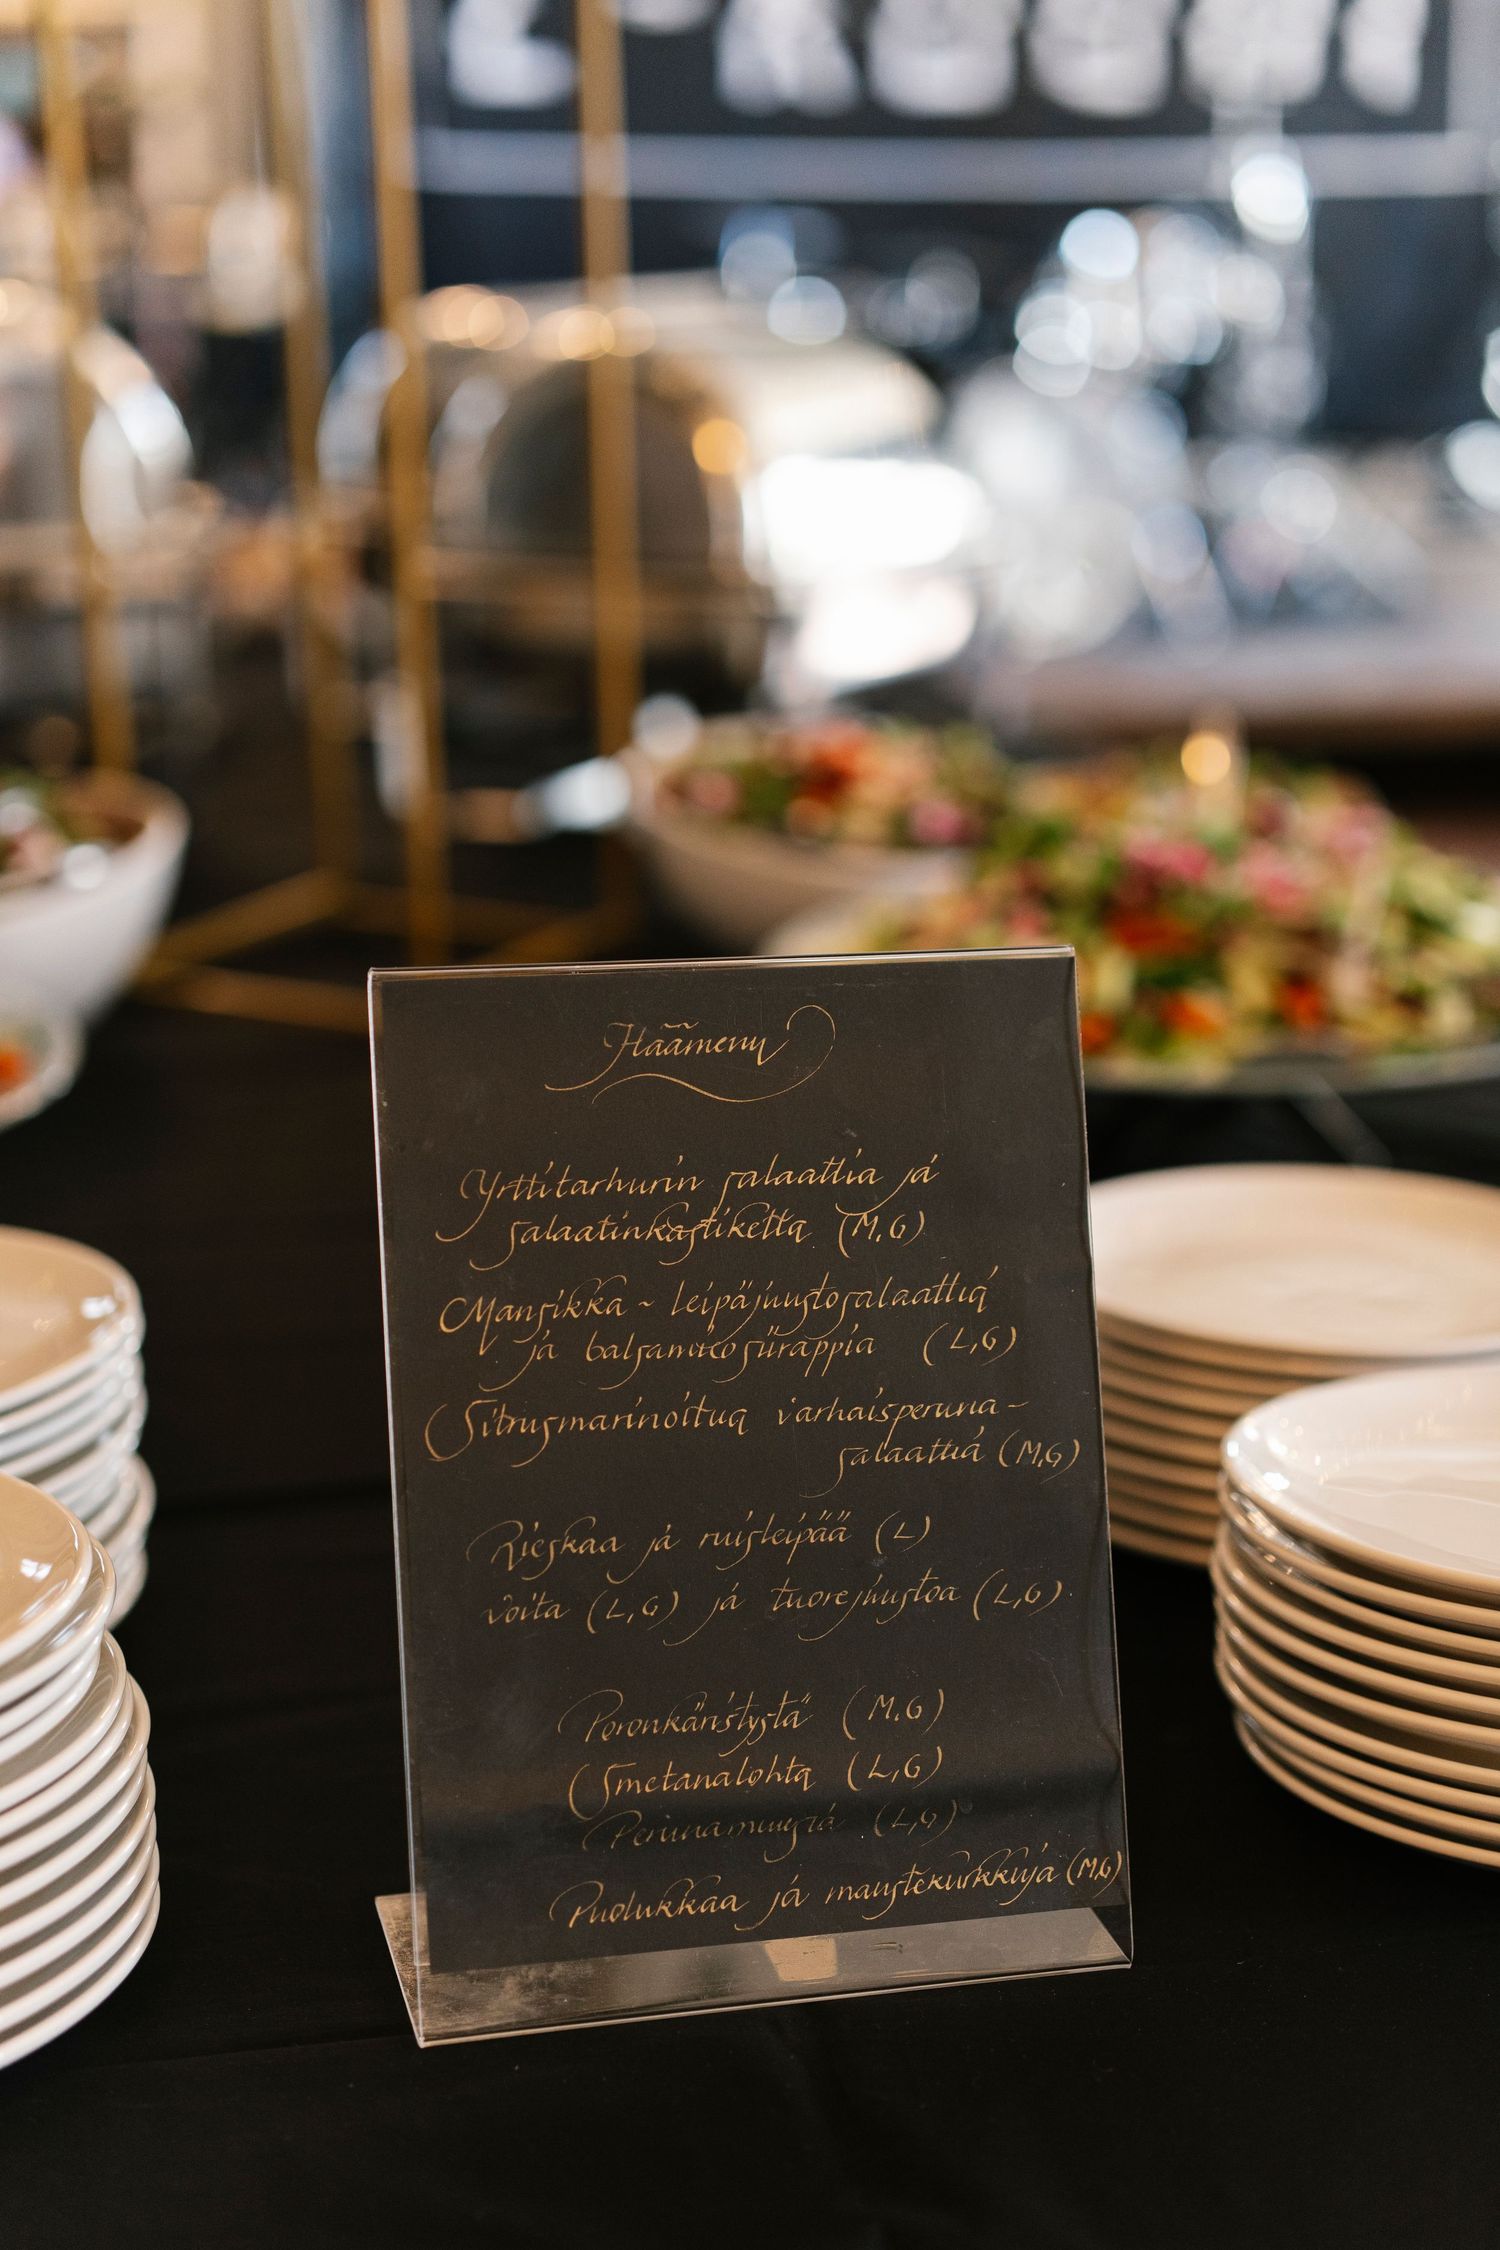 Häämenu
Yrttitarhurin salaattia ja
salaatinkastiketta (M,G)
Mansikka - leipäjuustosalaattia
ja balsamicosiirappia (L,G)
Sitrusmarinoitua varhaisperuna-
salaattia (M,G)
Rieskaa ja ruisleipää (L)
voita (L,G) ja tuorejuustoa (L,G)
Poronkäristystä (M,G)
Smetanalohta (L,G)
Perunamuusia (L,G)
Puolukkaa ja maustekurkkuja (M,G)